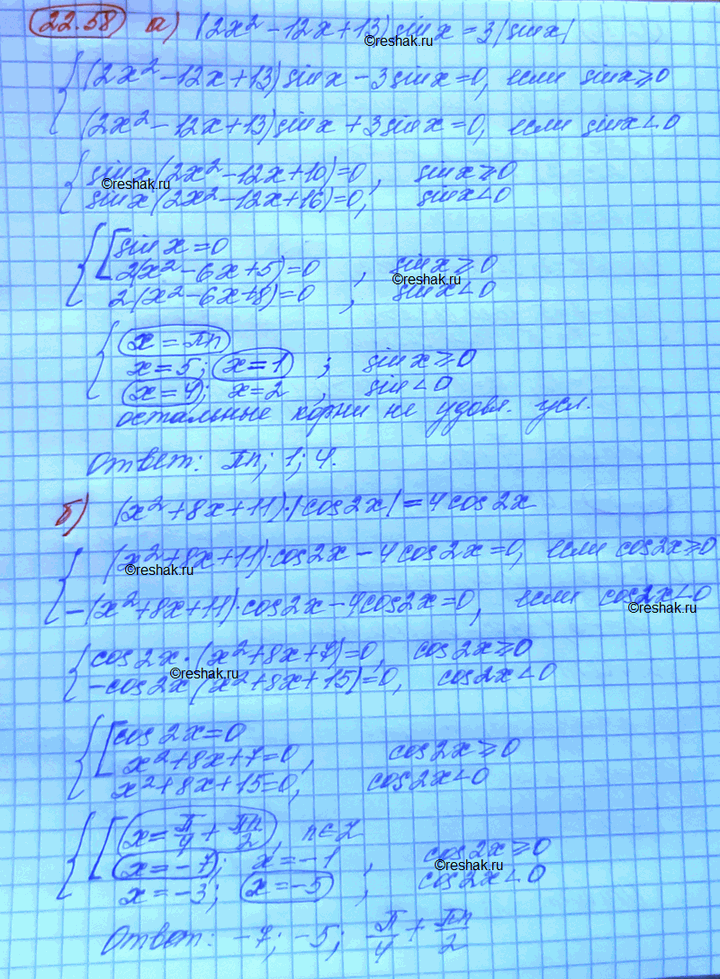 22.58 а) (2x² - 12x + 13) sin x = 3 |sin x|
©reshak.ru
(2x² - 12x + 13) sin x - 3 sin x = 0, если sin x ≥ 0
(2x² - 12x + 13) sin x + 3 sin x = 0, если sin x < 0
sin x (2x² - 12x + 10) = 0, sin x ≥ 0
©reshak.ru
sin x (2x² - 12x + 16) = 0, sin x < 0
sin x = 0
2(x² - 6x + 5) = 0, sin x ≥ 0
©reshak.ru
2(x² - 6x + 8) = 0, sin x < 0
x = πn
x = 5; x = 1; sin x ≥ 0
x = 4; x = 2, sin < 0
остальные корни не удовл. усл.
Ответ: πn; 1; 4.
б) (x² + 8x + 11)·|cos 2x| = 4 cos 2x
(x² + 8x + 11)·cos 2x - 4 cos 2x = 0, если cos 2x ≥ 0
©reshak.ru
-(x² + 8x + 11)·cos 2x - 4 cos 2x = 0, если cos 2x < 0
©reshak.ru
cos 2x·(x² + 8x + 7) = 0, cos 2x ≥ 0
©reshak.ru
-cos 2x (x² + 8x + 15) = 0, cos 2x < 0
cos 2x = 0
x² + 8x + 7 = 0, cos 2x ≥ 0
x² + 8x + 15 = 0, cos 2x < 0
x = π/4 + πn/2, n ∈ Z
x = -7; x = -1, cos 2x ≥ 0
©reshak.ru
x = -3; x = -5, cos 2x < 0
Ответ: -7; -5; π/4 + πn/2